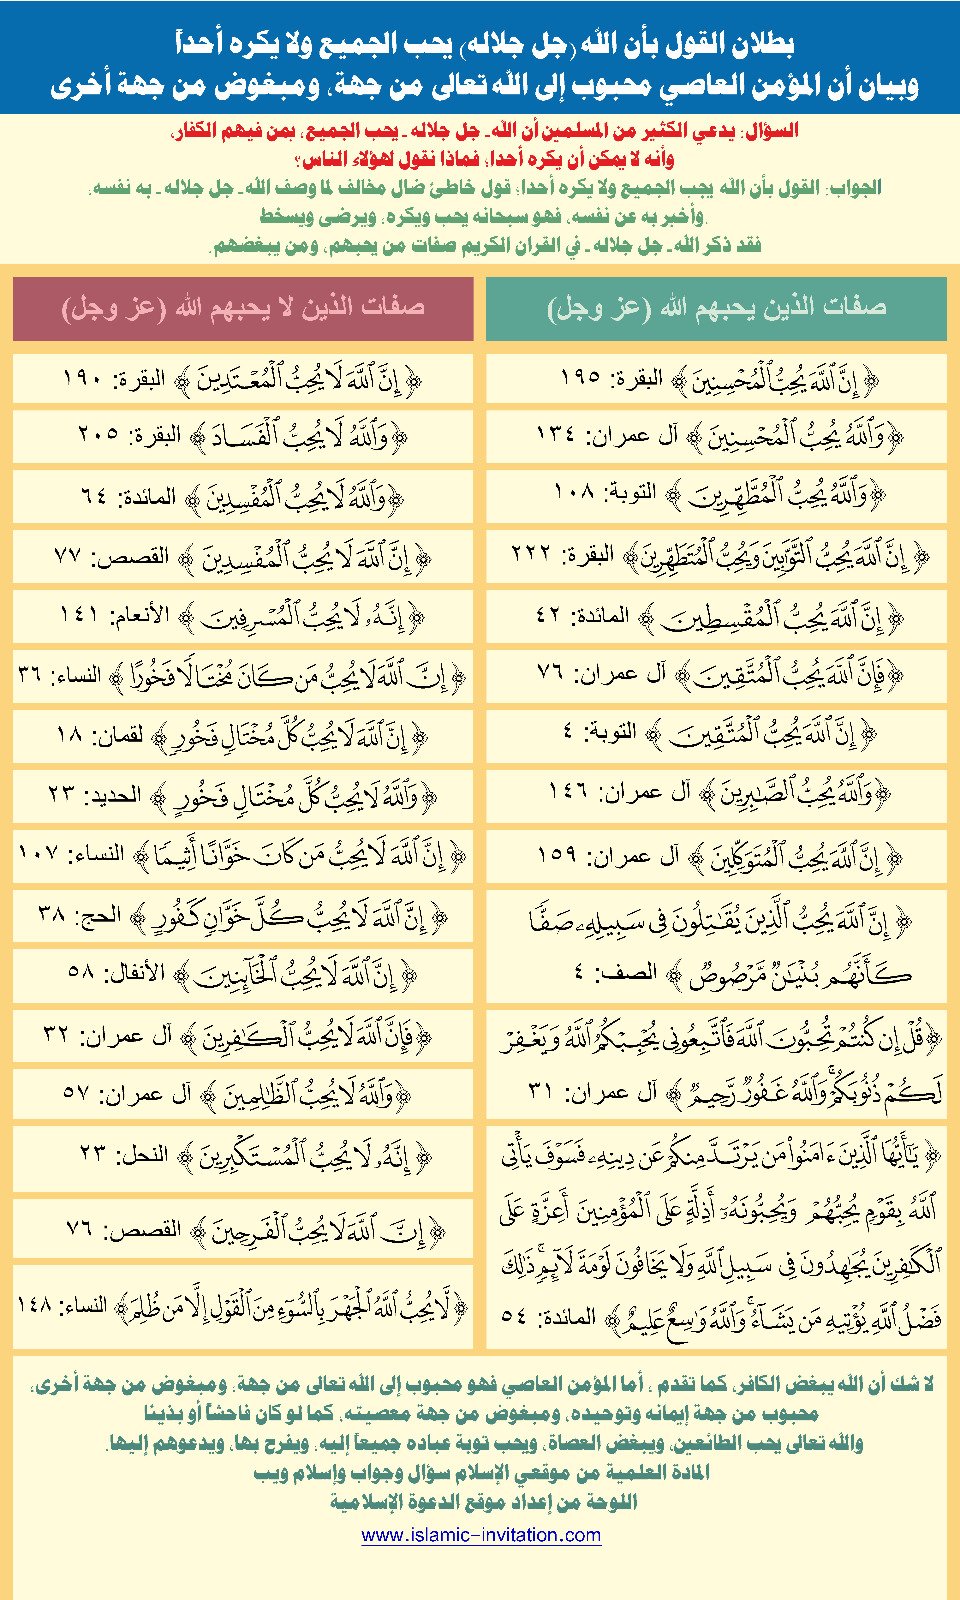 بطلان القول بأن الله (جل جلاله) يحب الجميع ولا يكره أحداً
وبيان أن المؤمن العاصي محبوب إلى الله تعالى من جهة، ومبغوض من جهة أخرى
السؤال: يدعي الكثير من المسلمين أن الله - جل جلاله - يحب الجميع، بمن فيهم الكفار،
وأنه لا يمكن أن يكره أحدا، فماذا نقول لهؤلاء الناس؟
الجواب: القول بأن الله يجب الجميع ولا يكره أحدا؛ قول خاطئ ضال مخالف لما وصف الله - جل جلاله - به نفسه،
.وأخبر به عن نفسه، فهو سبحانه يحب ويكره، ويرضى ويسخط
فقد ذكر الله - جل جلاله - في القران الكريم صفات من يحبهم، ومن يبغضهم.
صفات الذين يحبهم الله (عز وجل)
﴿ إِنَّ ٱللَّهَ يُحِبُّ ٱلْمُحْسِنِينَ ﴾ البقرة: ١٩٥
﴿ وَٱللَّهُ يُحِبُّ ٱلْمُحْسِنِينَ ﴾ آل عمران: ١٣٤
﴿ وَٱللَّهُ يُحِبُّ ٱلْمُطَّهِّرِينَ ﴾ التوبة: ١٠٨
﴿ إِنَّ ٱللَّهَ يُحِبُّ ٱلتَّوَّٰبِينَ وَيُحِبُّ ٱلْمُتَطَهِّرِينَ ﴾ البقرة: ٢٢٢
﴿ إِنَّ ٱللَّهَ يُحِبُّ ٱلْمُقْسِطِينَ ﴾ المائدة: ٤٢
﴿ فَإِنَّ ٱللَّهَ يُحِبُّ ٱلْمُتَّقِينَ ﴾ آل عمران: ٧٦
﴿ إِنَّ ٱللَّهَ يُحِبُّ ٱلْمُتَّقِينَ ﴾ التوبة: ٤
﴿ وَٱللَّهُ يُحِبُّ ٱلصَّٰبِرِينَ ﴾ آل عمران: ١٤٦
﴿ إِنَّ ٱللَّهَ يُحِبُّ ٱلْمُتَوَكِّلِينَ ﴾ آل عمران: ١٥٩
﴿ إِنَّ ٱللَّهَ يُحِبُّ ٱلَّذِينَ يُقَٰتِلُونَ فِى سَبِيلِهِۦ صَفًّا
كَأَنَّهُم بُنْيَٰنٌ مَّرْصُوصٌ ﴾ الصف: ٤
﴿ قُلْ إِن كُنتُمْ تُحِبُّونَ ٱللَّهَ فَٱتَّبِعُونِى يُحْبِبْكُمُ ٱللَّهُ وَيَغْفِرْ
لَكُمْ ذُنُوبَكُمْ ۗ وَٱللَّهُ غَفُورٌ رَّحِيمٌ ﴾ آل عمران: ٣١
﴿ يَٰٓأَيُّهَا ٱلَّذِينَ ءَامَنُوا۟ مَن يَرْتَدَّ مِنكُمْ عَن دِينِهِۦ فَسَوْفَ يَأْتِى
ٱللَّهُ بِقَوْمٍ يُحِبُّهُمْ وَيُحِبُّونَهُۥٓ أَذِلَّةٍ عَلَى ٱلْمُؤْمِنِينَ أَعِزَّةٍ عَلَى
ٱلْكَٰفِرِينَ يُجَٰهِدُونَ فِى سَبِيلِ ٱللَّهِ وَلَا يَخَافُونَ لَوْمَةَ لَآئِمٍ ۚ ذَٰلِكَ
فَضْلُ ٱللَّهِ يُؤْتِيهِ مَن يَشَآءُ ۚ وَٱللَّهُ وَٰسِعٌ عَلِيمٌ ﴾ المائدة: ٥٤
صفات الذين لا يحبهم الله (عز وجل)
﴿ إِنَّ ٱللَّهَ لَا يُحِبُّ ٱلْمُعْتَدِينَ ﴾ البقرة: ١٩٠
﴿ وَٱللَّهُ لَا يُحِبُّ ٱلْفَسَادَ ﴾ البقرة: ٢٠٥
﴿ وَٱللَّهُ لَا يُحِبُّ ٱلْمُفْسِدِينَ ﴾ المائدة: ٦٤
﴿ إِنَّ ٱللَّهَ لَا يُحِبُّ ٱلْمُفْسِدِينَ ﴾ القصص: ٧٧
﴿ إِنَّهُۥ لَا يُحِبُّ ٱلْمُسْرِفِينَ ﴾ الأنعام: ١٤١
﴿ إِنَّ ٱللَّهَ لَا يُحِبُّ مَن كَانَ مُخْتَالًا فَخُورًا ﴾ النساء: ٣٦
﴿ إِنَّ ٱللَّهَ لَا يُحِبُّ كُلَّ مُخْتَالٍ فَخُورٍ ﴾ لقمان: ١٨
﴿ وَٱللَّهُ لَا يُحِبُّ كُلَّ مُخْتَالٍ فَخُورٍ ﴾ الحديد: ٢٣
﴿ إِنَّ ٱللَّهَ لَا يُحِبُّ مَن كَانَ خَوَّانًا أَثِيمًا ﴾ النساء: ١٠٧
﴿ إِنَّ ٱللَّهَ لَا يُحِبُّ كُلَّ خَوَّانٍ كَفُورٍ ﴾ الحج: ٣٨
﴿ إِنَّ ٱللَّهَ لَا يُحِبُّ ٱلْخَآئِنِينَ ﴾ الأنفال: ٥٨
﴿ فَإِنَّ ٱللَّهَ لَا يُحِبُّ ٱلْكَٰفِرِينَ ﴾ آل عمران: ٣٢
﴿ وَٱللَّهُ لَا يُحِبُّ ٱلظَّٰلِمِينَ ﴾ آل عمران: ٥٧
﴿ إِنَّهُۥ لَا يُحِبُّ ٱلْمُسْتَكْبِرِينَ ﴾ النحل: ٢٣
﴿ إِنَّ ٱللَّهَ لَا يُحِبُّ ٱلْفَرِحِينَ ﴾ القصص: ٧٦
﴿ لَّا يُحِبُّ ٱللَّهُ ٱلْجَهْرَ بِٱلسُّوٓءِ مِنَ ٱلْقَوْلِ إِلَّا مَن ظُلِمَ ﴾ النساء: ١٤٨
لا شك أن الله يبغض الكافر، كما تقدم ، أما المؤمن العاصي فهو محبوب إلى الله تعالى من جهة، ومبغوض من جهة أخرى،
محبوب من جهة إيمانه وتوحيده، ومبغوض من جهة معصيته، كما لو كان فاحشاً أو بذيئا
والله تعالى يحب الطائعين، ويبغض العصاة، ويحب توبة عباده جميعاً إليه، ويفرح بها، ويدعوهم إليها.
المادة العلمية من موقعي الإسلام سؤال وجواب وإسلام ويب
اللوحة من إعداد موقع الدعوة الإسلامية
www.islamic-invitation.com